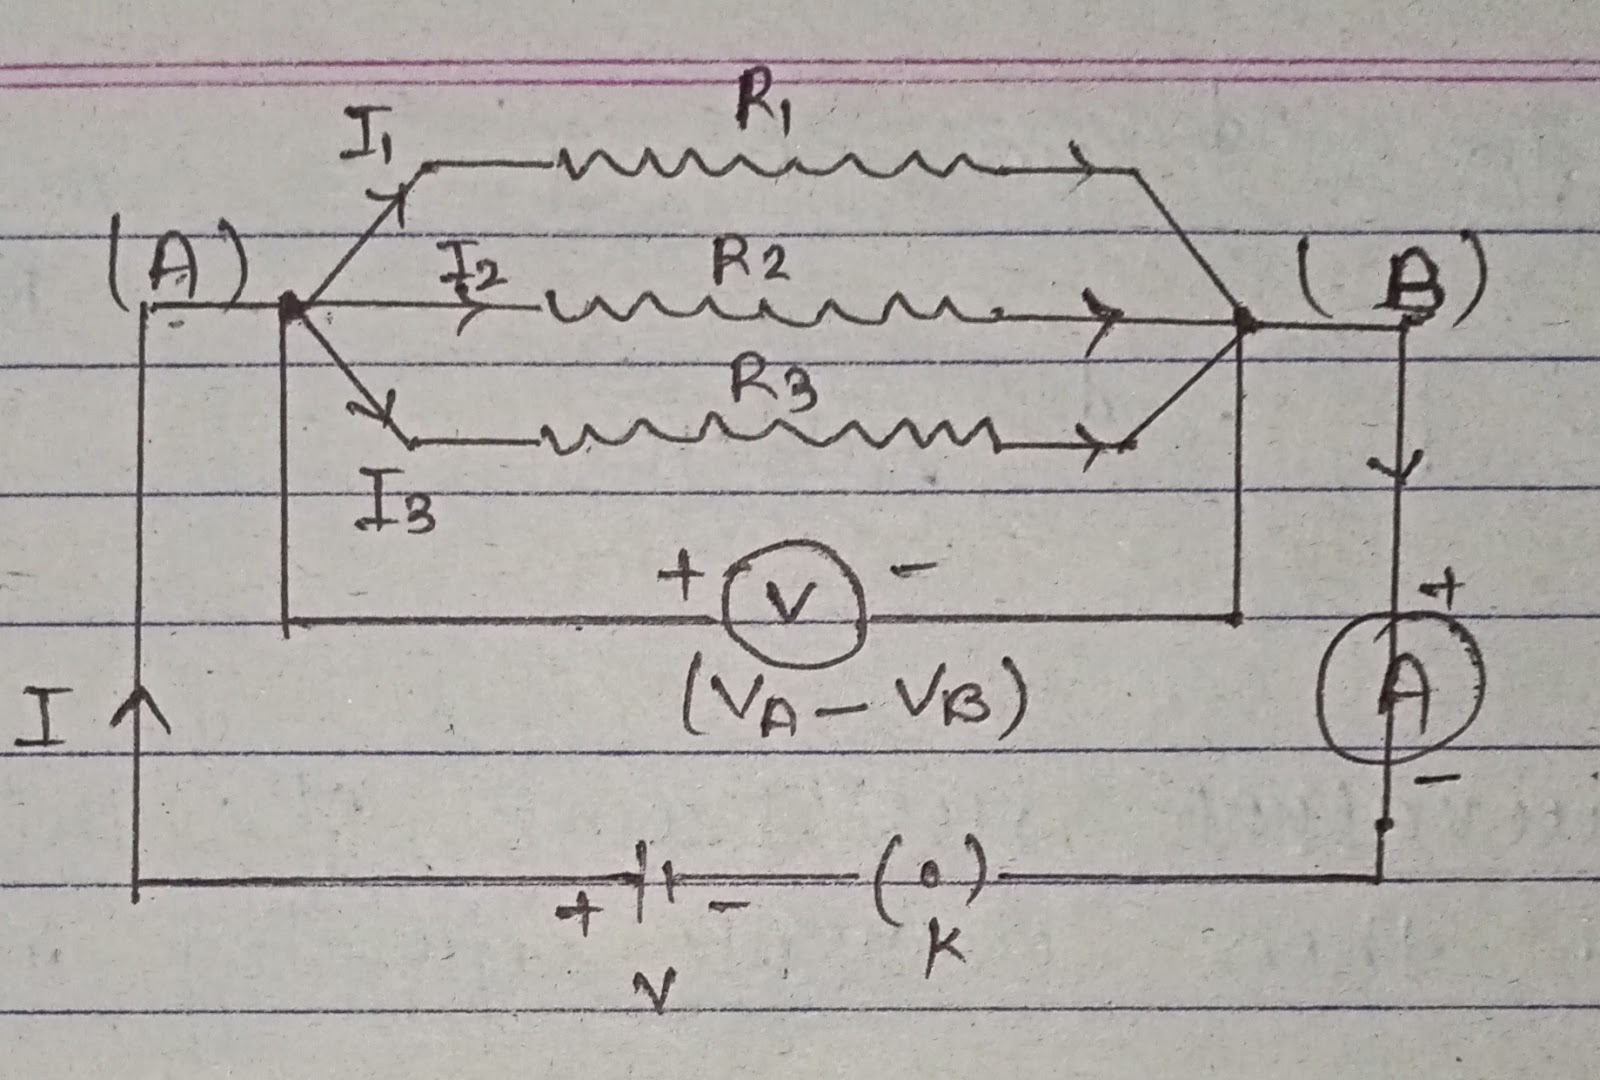 R1
I1
(A)
I2
R2
(B)
R3
I3
+ V -
(VA - VB)
+
A
-
I
+ -
(o)
K
V